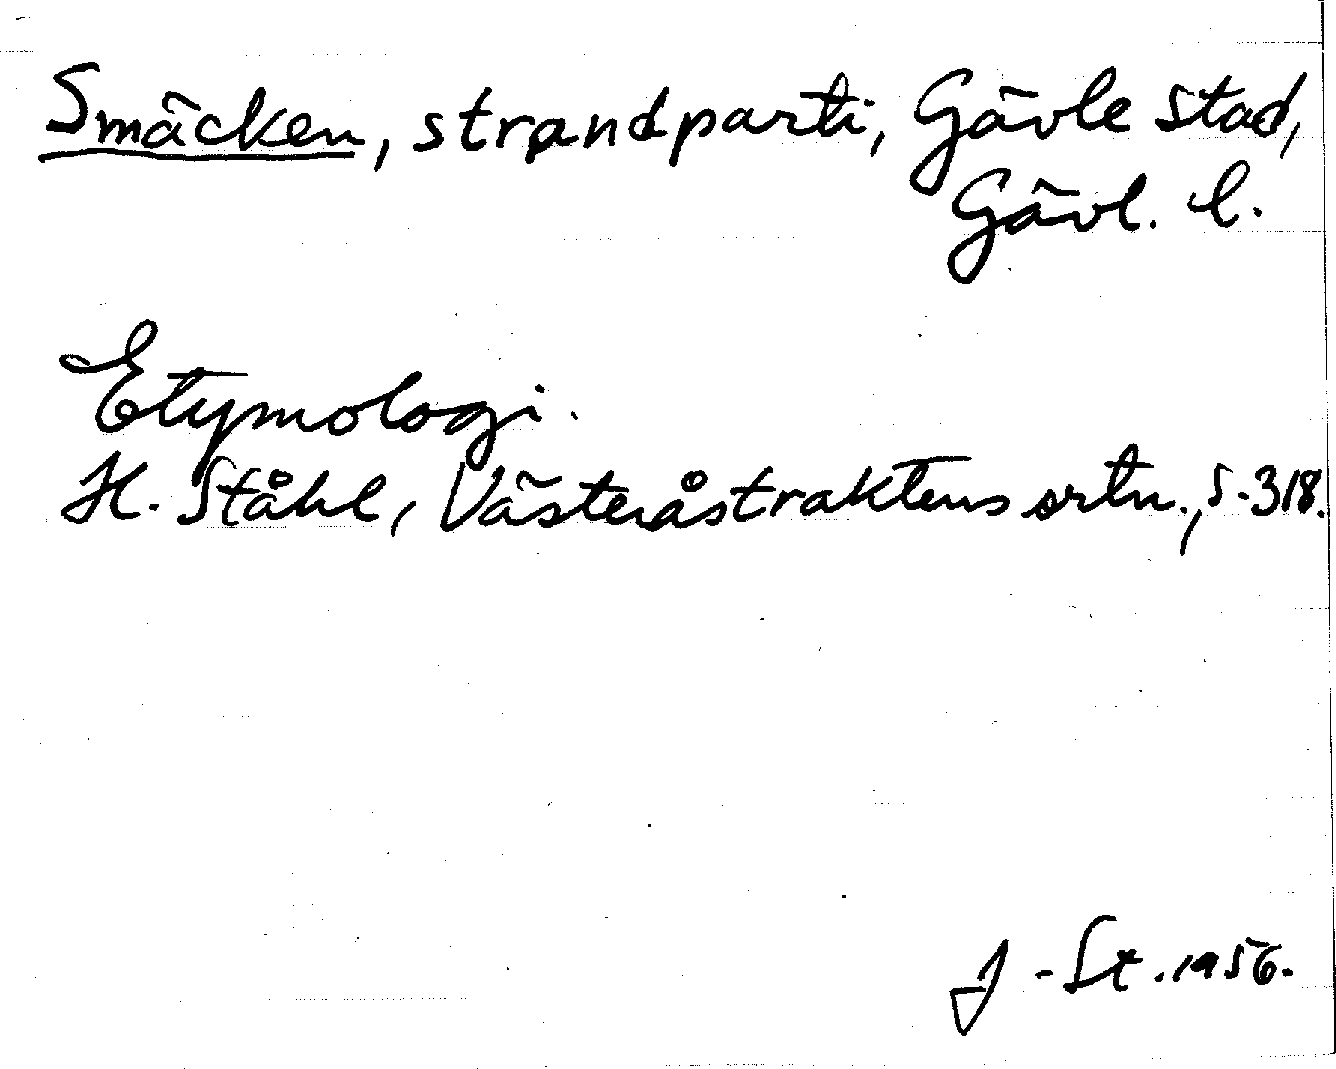 Smäcken, strandparti, Gävle stad,
Gävl. l.
Etymologi.
H. Ståhl, Västeråstraktens ortn., s. 318.
J-St. 1956.